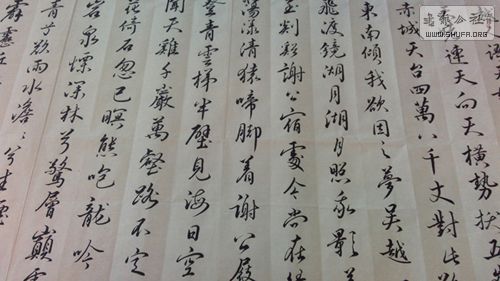 連天向天橫勢拔五
赤城天台四萬八千丈對此
東南傾我欲因之夢吳越
飛渡鏡湖月湖月照我影
剡谿謝公宿處今尚在
蕩漾清猿啼腳着謝公屐
登青雲梯半壁見海日空
聞天雞千巖萬壑路不定
花倚石忽已暝熊咆龍吟
泉慄深林兮驚層巔
青兮欲雨水澹〻兮生煙
霹靂丘
WWW.SHUFA.ORG